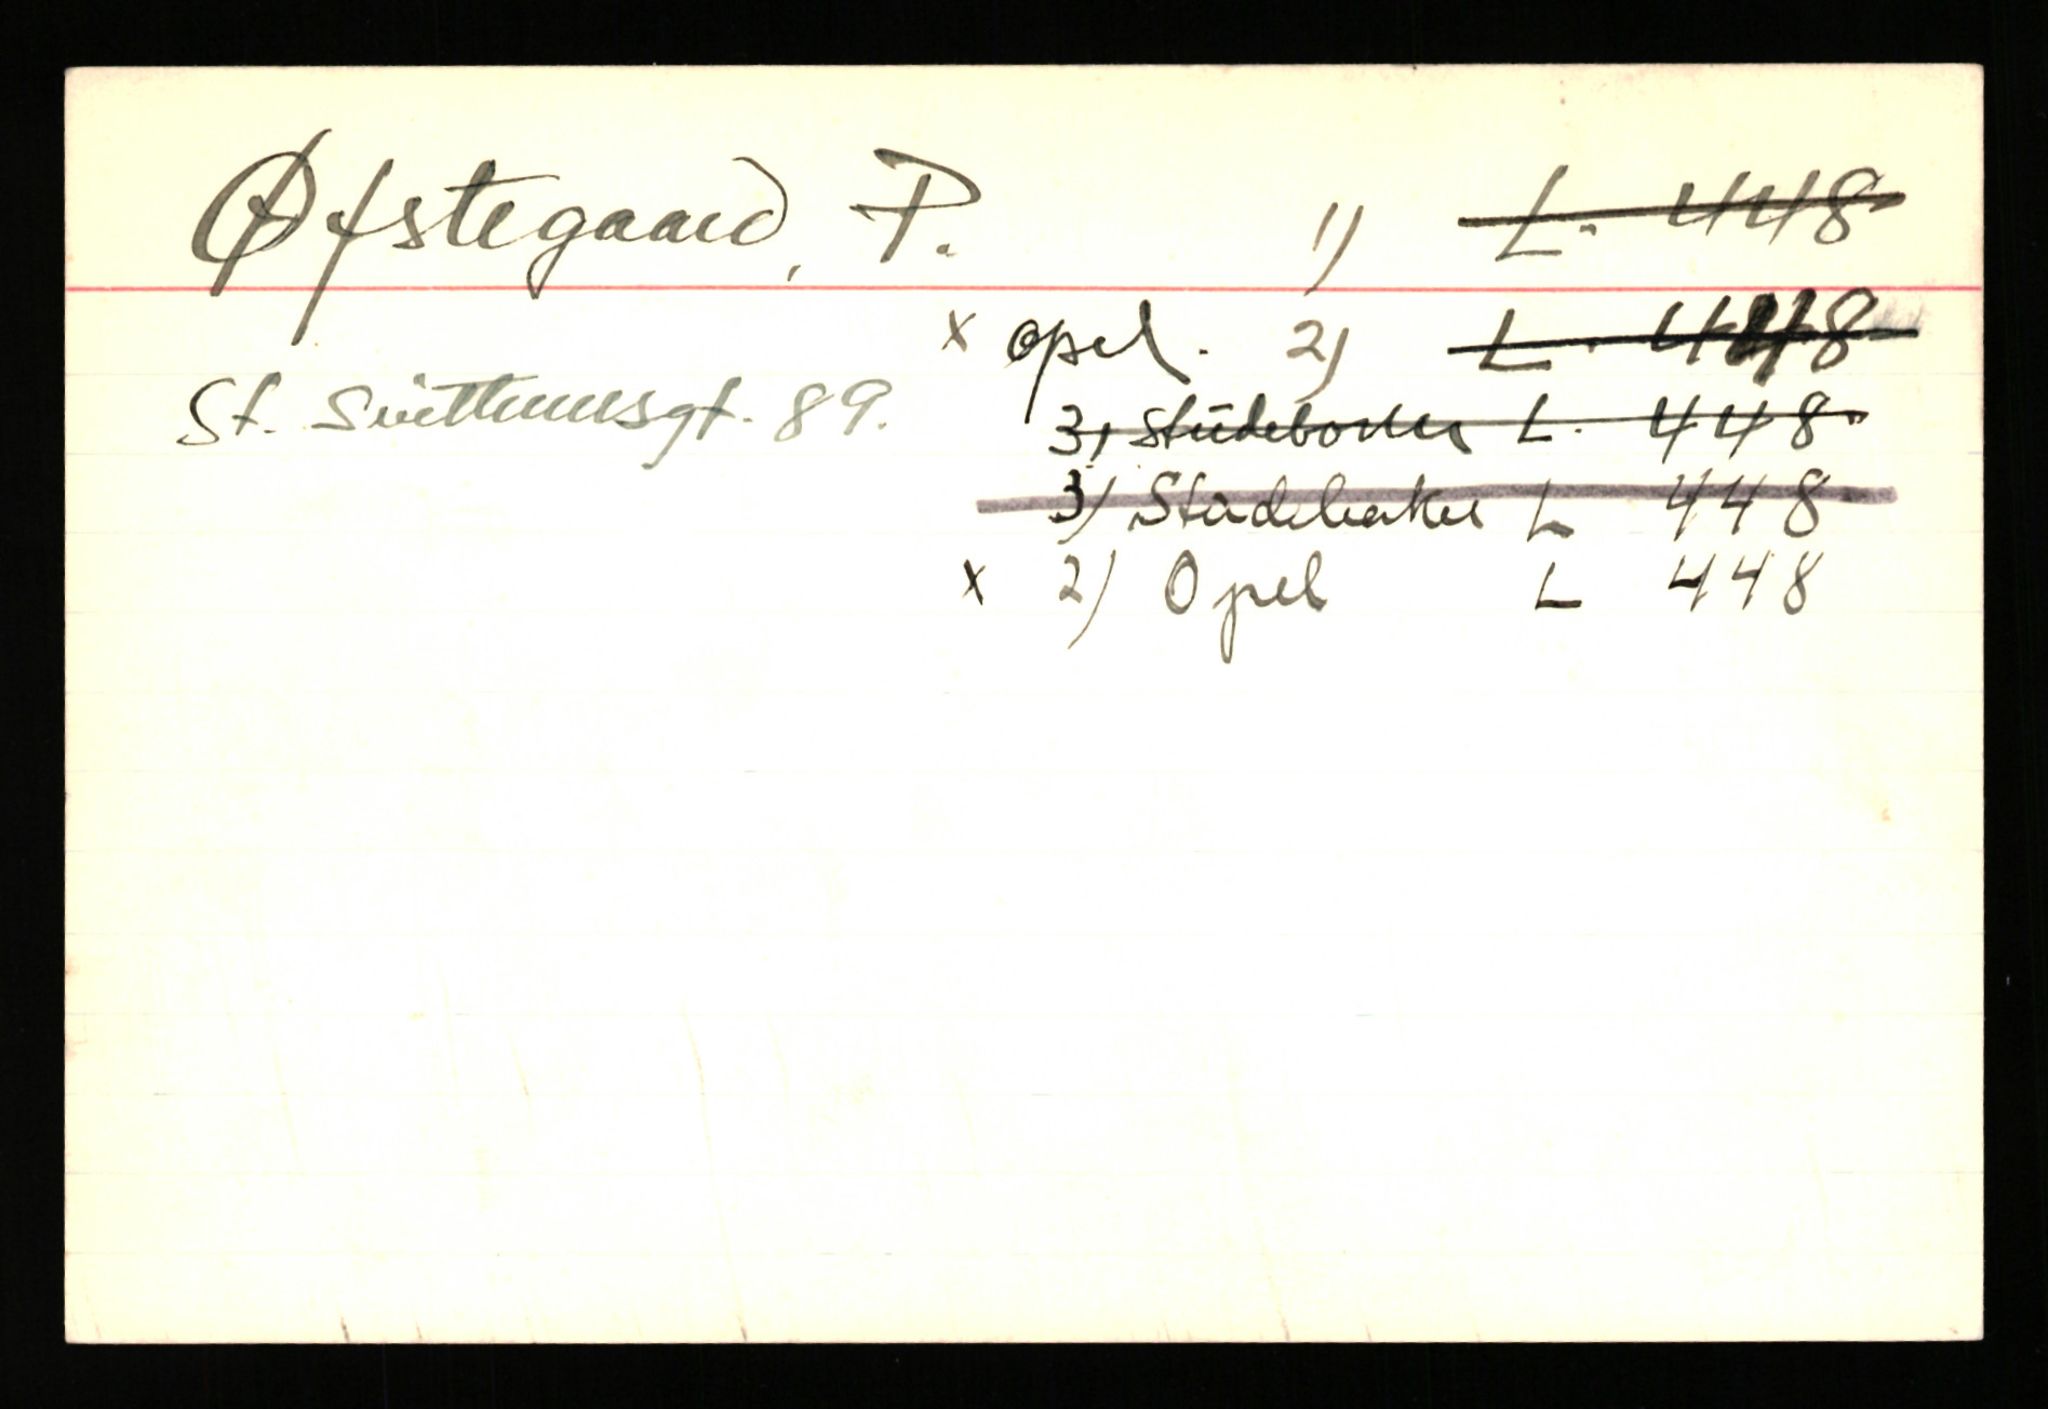 Øfstegaard, P. 1) L. 448
x Opel. 2) L. 448
St. Svithunsgt. 89.
3) Studebaker L. 448
3) Studebaker L 448
x 2) Opel L 448